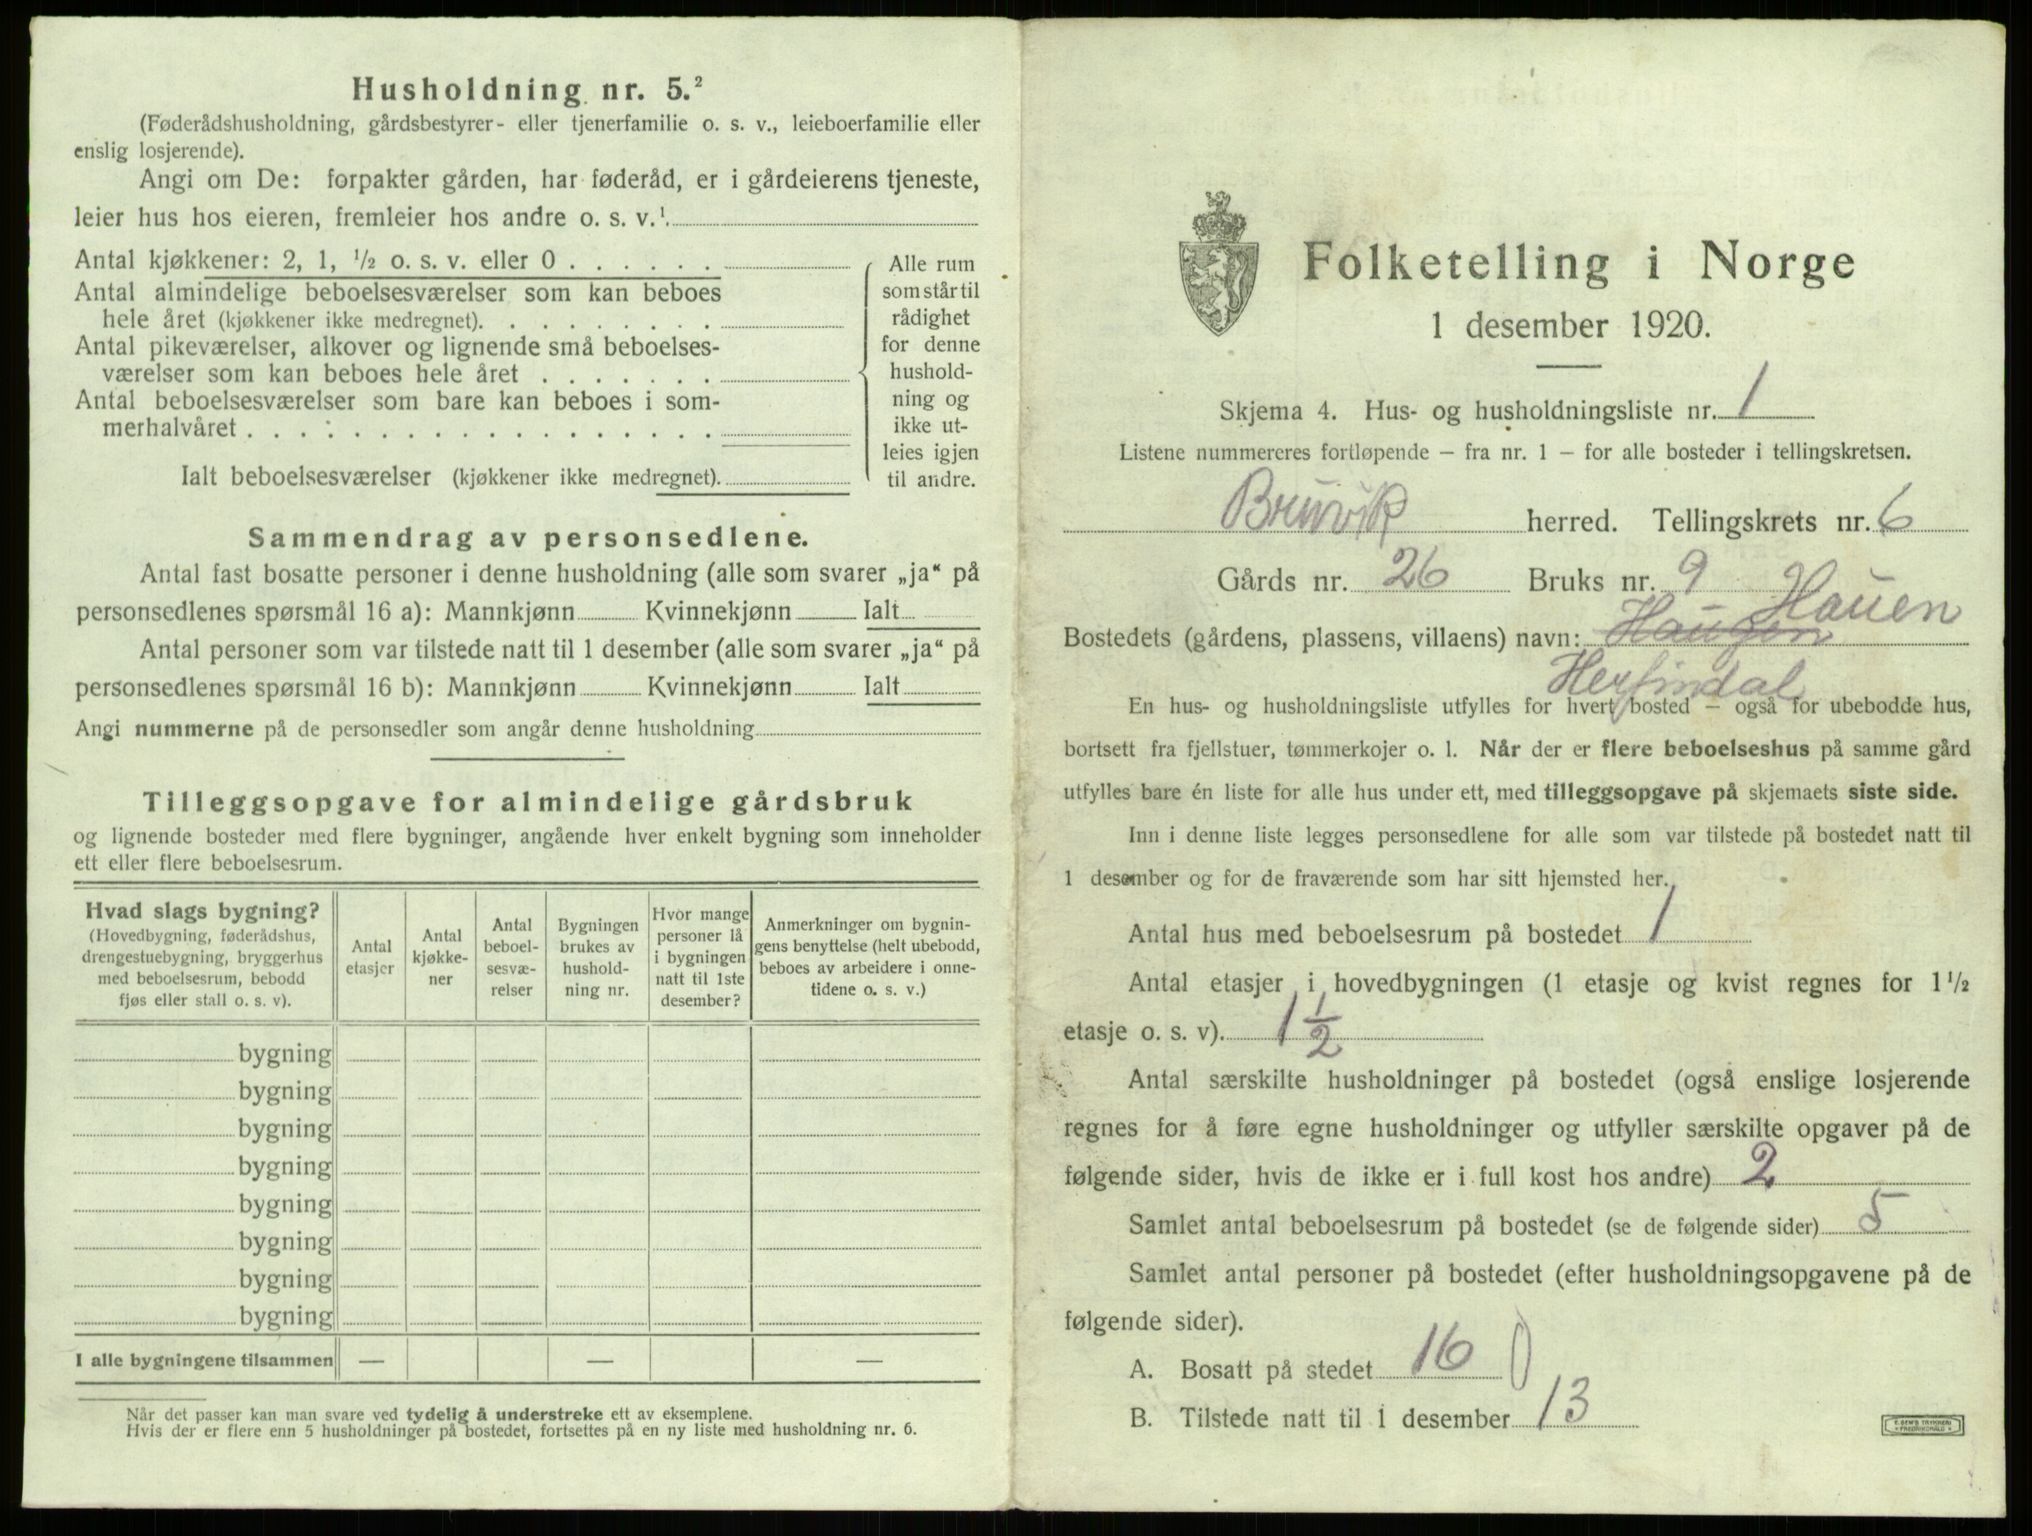 Husholdning nr. 5.²
(Føderådshusholdning, gårdsbestyrer- eller tjenerfamilie o. s. v., leieboerfamilie eller
enslig losjerende).
Angi om De: forpakter gården, har føderåd, er i gårdeierens tjeneste,
leier hus hos eieren, fremleier hos andre o. s. v.¹
Antal kjøkkener: 2, 1, ½ o. s. v. eller 0 . . . . . .
Antal almindelige beboelsesværelser som kan beboes
hele året (kjøkkener ikke medregnet). . . . . . . . .
Antal pikeværelser, alkover og lignende små beboelses-
værelser som kan beboes hele året . . . . . . .
Antal beboelsesværelser som bare kan beboes i som-
merhalvåret . . . . . . . . . . . . . . . . . .
Ialt beboelsesværelser (kjøkkener ikke medregnet).
Alle rum
som står til
rådighet
for denne
hushold-
ning og
ikke ut-
leies igjen
til andre.
Sammendrag av personsedlene.
Antal fast bosatte personer i denne husholdning (alle som svarer „ja“ på
personsedlenes spørsmål 16 a): Mannkjønn Kvinnekjønn Ialt
Antal personer som var tilstede natt til 1 desember (alle som svarer „ja“ på
personsedlenes spørsmål 16 b): Mannkjønn Kvinnekjønn Ialt
Angi nummerne på de personsedler som angår denne husholdning
Tilleggsopgave for almindelige gårdsbruk
og lignende bosteder med flere bygninger, angående hver enkelt bygning som inneholder
ett eller flere beboelsesrum.
Hvad slags bygning?
(Hovedbygning, føderådshus,
drengestuebygning, bryggerhus
med beboelsesrum, bebodd
fjøs eller stall o. s. v).
Antal
etasjer
Antal
kjøkke-
ner
Antal
beboel-
sesvæ-
relser
Bygningen
brukes av
hushold-
ning nr.
Hvor mange
personer lå
i bygningen
natt til 1ste
desember?
Anmerkninger om bygnin-
gens benyttelse (helt ubebodd,
beboes av arbeidere i onne-
tidene o. s. v.)
bygning
bygning
bygning
bygning
bygning
bygning
bygning
bygning
I alle bygningene tilsammen — — —
Når det passer kan man svare ved tydelig å understreke ett av eksemplene.
Hvis der er flere enn 5 husholdninger på bostedet, fortsettes på en ny liste med husholdning nr. 6.
Folketelling i Norge
1 desember 1920.
Skjema 4. Hus- og husholdningsliste nr. 1
Listene nummereres fortløpende — fra nr. 1 — for alle bosteder i tellingskretsen.
Bruvik herred. Tellingskrets nr. 6
Gårds nr. 26 Bruks nr. 9
Hauen
Bostedets (gårdens, plassens, villaens) navn: Haugen
Herfindal
En hus- og husholdningsliste utfylles for hvert bosted — også for ubebodde hus,
bortsett fra fjellstuer, tømmerkojer o. l. Når der er flere beboelseshus på samme gård
utfylles bare én liste for alle hus under ett, med tilleggsopgave på skjemaets siste side.
Inn i denne liste legges personsedlene for alle som var tilstede på bostedet natt til
1 desember og for de fraværende som har sitt hjemsted her.
Antal hus med beboelsesrum på bostedet 1
Antal etasjer i hovedbygningen (1 etasje og kvist regnes for 1½
etasje o. s. v). 1 ½
Antal særskilte husholdninger på bostedet (også enslige losjerende
regnes for å føre egne husholdninger og utfyller særskilte opgaver på de
følgende sider, hvis de ikke er i full kost hos andre) 2
Samlet antal beboelsesrum på bostedet (se de følgende sider) 5
Samlet antal personer på bostedet (efter husholdningsopgavene på de
følgende sider).
A. Bosatt på stedet 16 0
B. Tilstede natt til 1 desember 13
E. SEM'S TRYKKERI
FREDRIKSHALD